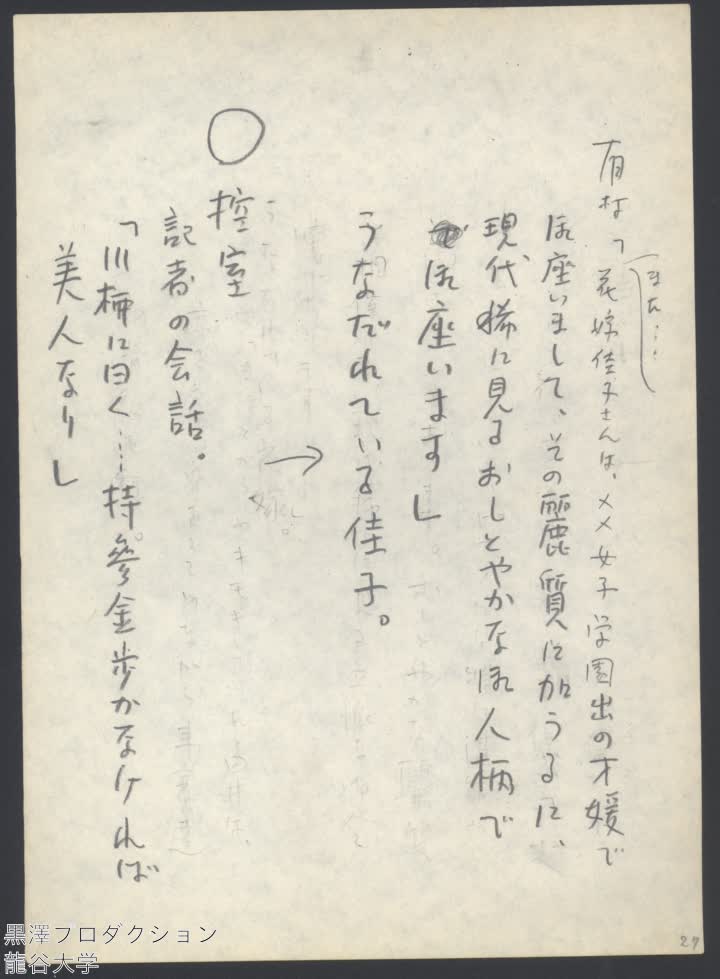 有村「花嫁佳子さんは、××女子学園出の才媛で
(また…)
御座いまして、その麗質に加うるに、
現代稀に見るおしとやかな御人柄で
御座います」
うなだれている佳子。
→
○ 控室
記者の会話。
「川柳に曰く…持参金歩かなければ
美人なり」
27
黒澤プロダクション
龍谷大学